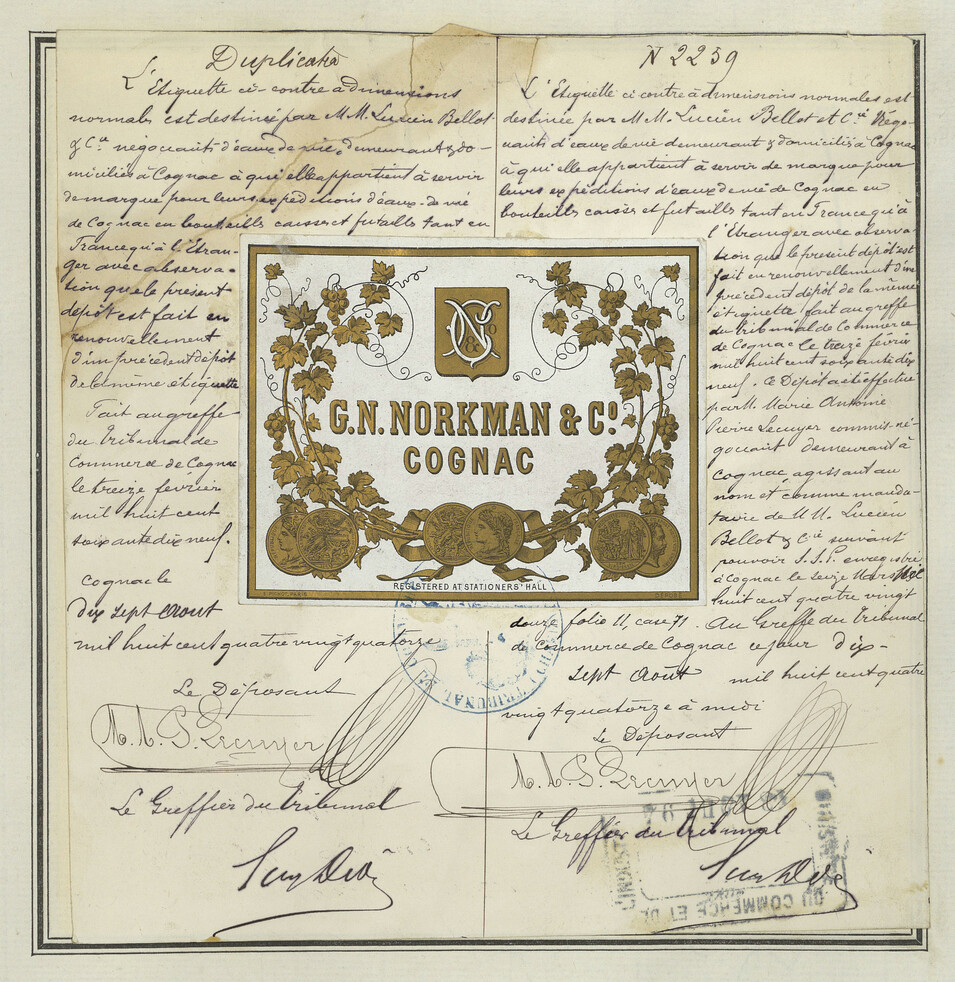 Duplicata
L'Etiquette ci-contre à dimensions
normales est destinée par M.M. Lucien Bellot
& Cie négociants d'eaux de vie, demeurant & do-
miciliés à Cognac à qui elle appartient à servir
de marque pour leurs expéditions d'eaux-de-vie
de Cognac en bouteilles caisses et futailles tant en
France qu'à l'Etran-
ger avec observa-
tion que le présent
dépôt est fait en
renouvellement
d'un précédent dépôt
de la même étiquette
Fait au greffe
du Tribunal de
Commerce de Cognac
le treize février
mil huit cent
soixante dix neuf.
Cognac le
dix sept Août
mil huit cent quatre vingt quatorze
Le Déposant
Le Greffier du Tribunal
G.N. NORKMAN & Co.
COGNAC
REGISTERED AT STATIONERS' HALL
DÉPOSÉ
N 2259
L'Etiquette ci contre à dimensions normales est
destinée par M.M. Lucien Bellot et Cie Négo-
ciants d'eaux de vie demeurant & domiciliés à Cognac
à qui elle appartient à servir de marque pour
leurs expéditions d'eaux de vie de Cognac en
bouteilles caisses et futailles tant en France qu'à
l'Etranger avec observa-
tion que le présent dépôt est
fait en renouvellement d'un
précédent dépôt de la même
étiquette fait au greffe
du Tribunal de Commerce
de Cognac le treize février
mil huit cent soixante dix
neuf. Ce Dépôt a été effectué
par M. Marie Antoine
Pierre Lecuyer commis-né-
gociant demeurant à
Cognac, agissant au
nom et comme manda-
taire de M.M. Lucien
Bellot & Cie suivant
pouvoir S.S.P. enregistré
à Cognac le seize Mars Mil
huit cent quatre vingt
douze folio 11, case 71. Au Greffe du Tribunal
de Commerce de Cognac ce jour dix-
sept Août mil huit cent quatre
vingt quatorze à midi
Le Déposant
Le Greffier du Tribunal
TRIBUNAL
DU COMMERCE ET DE
L'INDUST